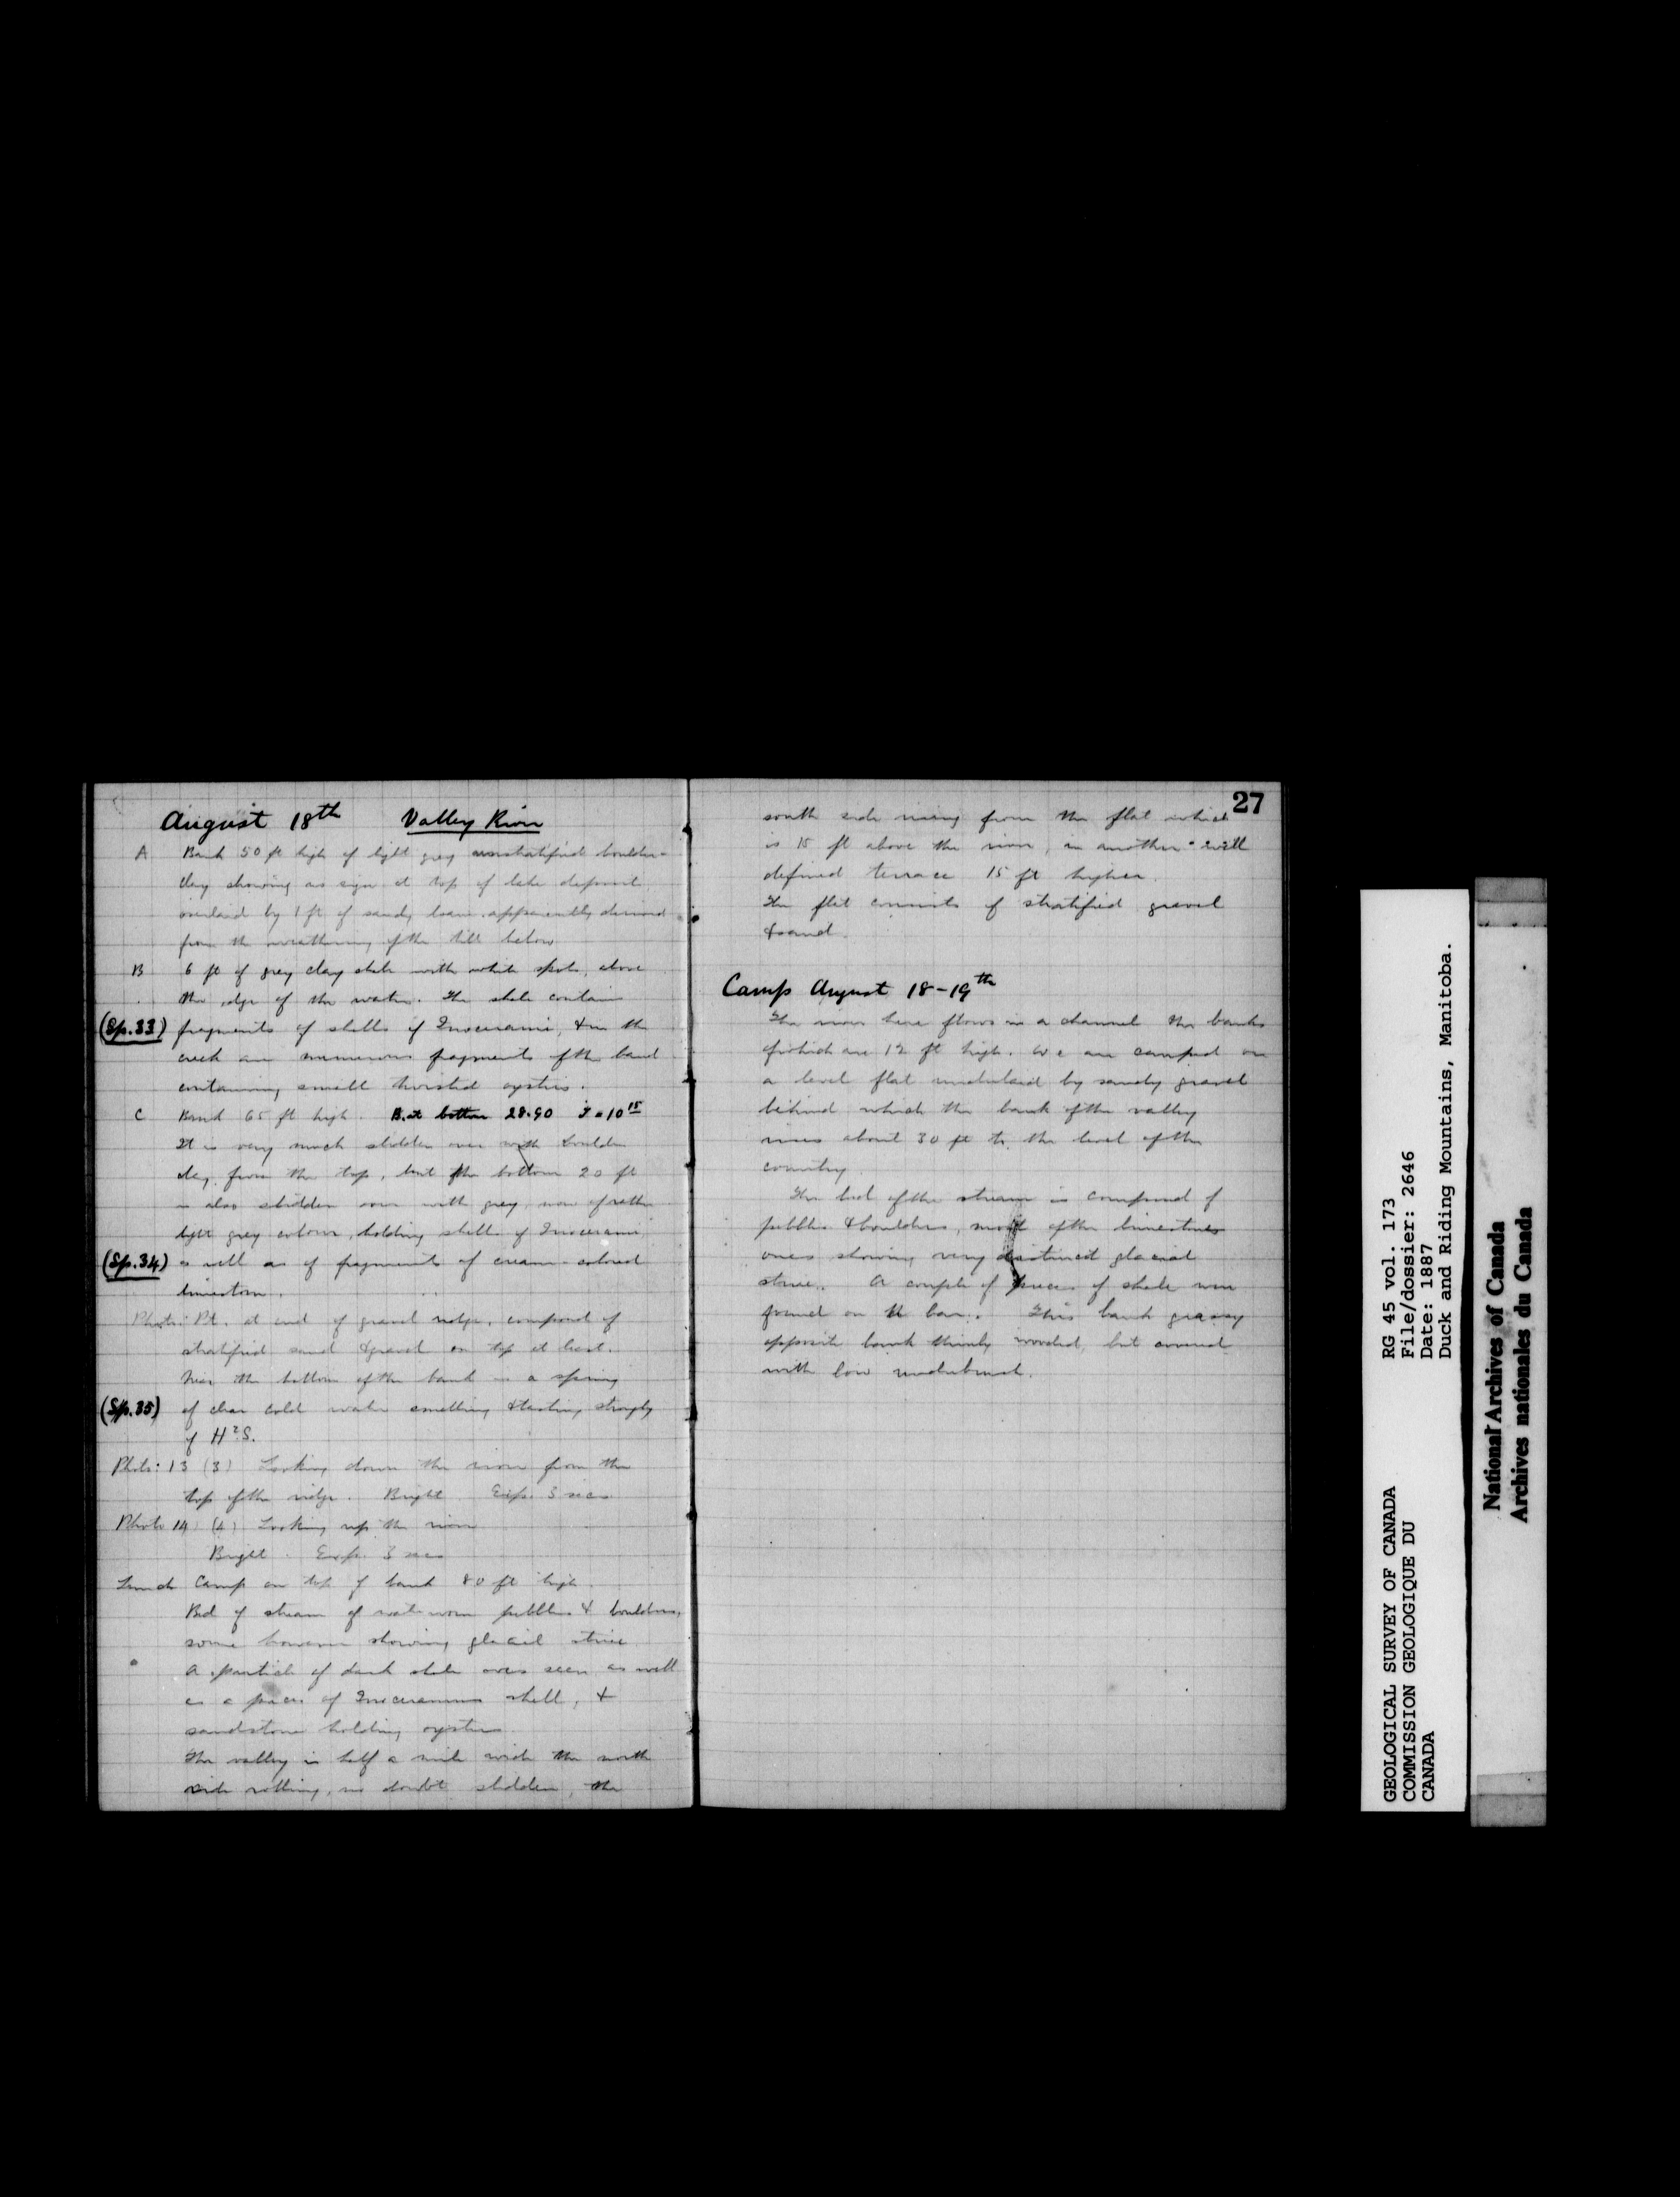 August 18th Valley River
A Bank 50 ft high of light grey unstratified boulder-
clay showing no sign at top of lake deposit
overlaid by 1 ft of sandy loam apparently derived
from the weathering of the till below
B 6 ft of grey clay shale with white spots, above
the edge of the water. The shale contains
(Sp.33) fragments of shells of Inocerami, & in the
creek are numerous fragments of the band
containing small twisted oysters.
C Band 65 ft high. B. at bottom 28.90 T = 10 15
It is very much slidden over with boulder
clay from the top, but the bottom 20 ft
is also slidden over with grey, now of rather
light grey colour, holding shells of Inocerami
(Sp.34) as well as of fragments of cream-colored
limestone.
Photo: Pt. at end of gravel ridge, composed of
stratified sand & gravel on top at least.
Near the bottom of the bank is a spring
(Sp.35) of clear cold water smelling & tasting strongly
of H2S.
Photo: 13 (3) Looking down the river from the
top of the ridge. Bright Exp. 3 secs
Photo 14 (4) Looking up the river
Bright. Exp. 3 secs
Lunch Camp on top of bank 80 ft high.
Bed of stream of waterworn pebbles & boulders,
some however showing glacial striae
A particle of dark shale was seen as well
as a piece of Inoceramus shell, &
sandstone holding oysters
The valley is half a mile wide the north
side rolling, no doubt slidden, the
27
south side rising from the flat which
is 15 ft above the river, in another well
defined terrace 15 ft higher.
The flat consists of stratified gravel
& sand.
Camp August 18-19th
The river here flows in a channel the banks
of which are 12 ft high. We are camped on
a level flat underlaid by sandy gravel
behind which the bank of the valley
rises about 30 ft to the level of the
country
The bed of the stream is composed of
pebbles & boulders, most of the limestone
ones showing very distinct glacial
striae. A couple of pieces of shale were
found on the bar. This bank grassy
opposite bank thinly wooded, but covered
with low underbrush.
GEOLOGICAL SURVEY OF CANADA
COMMISSION GEOLOGIQUE DU
CANADA
RG 45 vol. 173
File/dossier: 2646
Date: 1887
Duck and Riding Mountains, Manitoba.
National Archives of Canada
Archives nationales du Canada